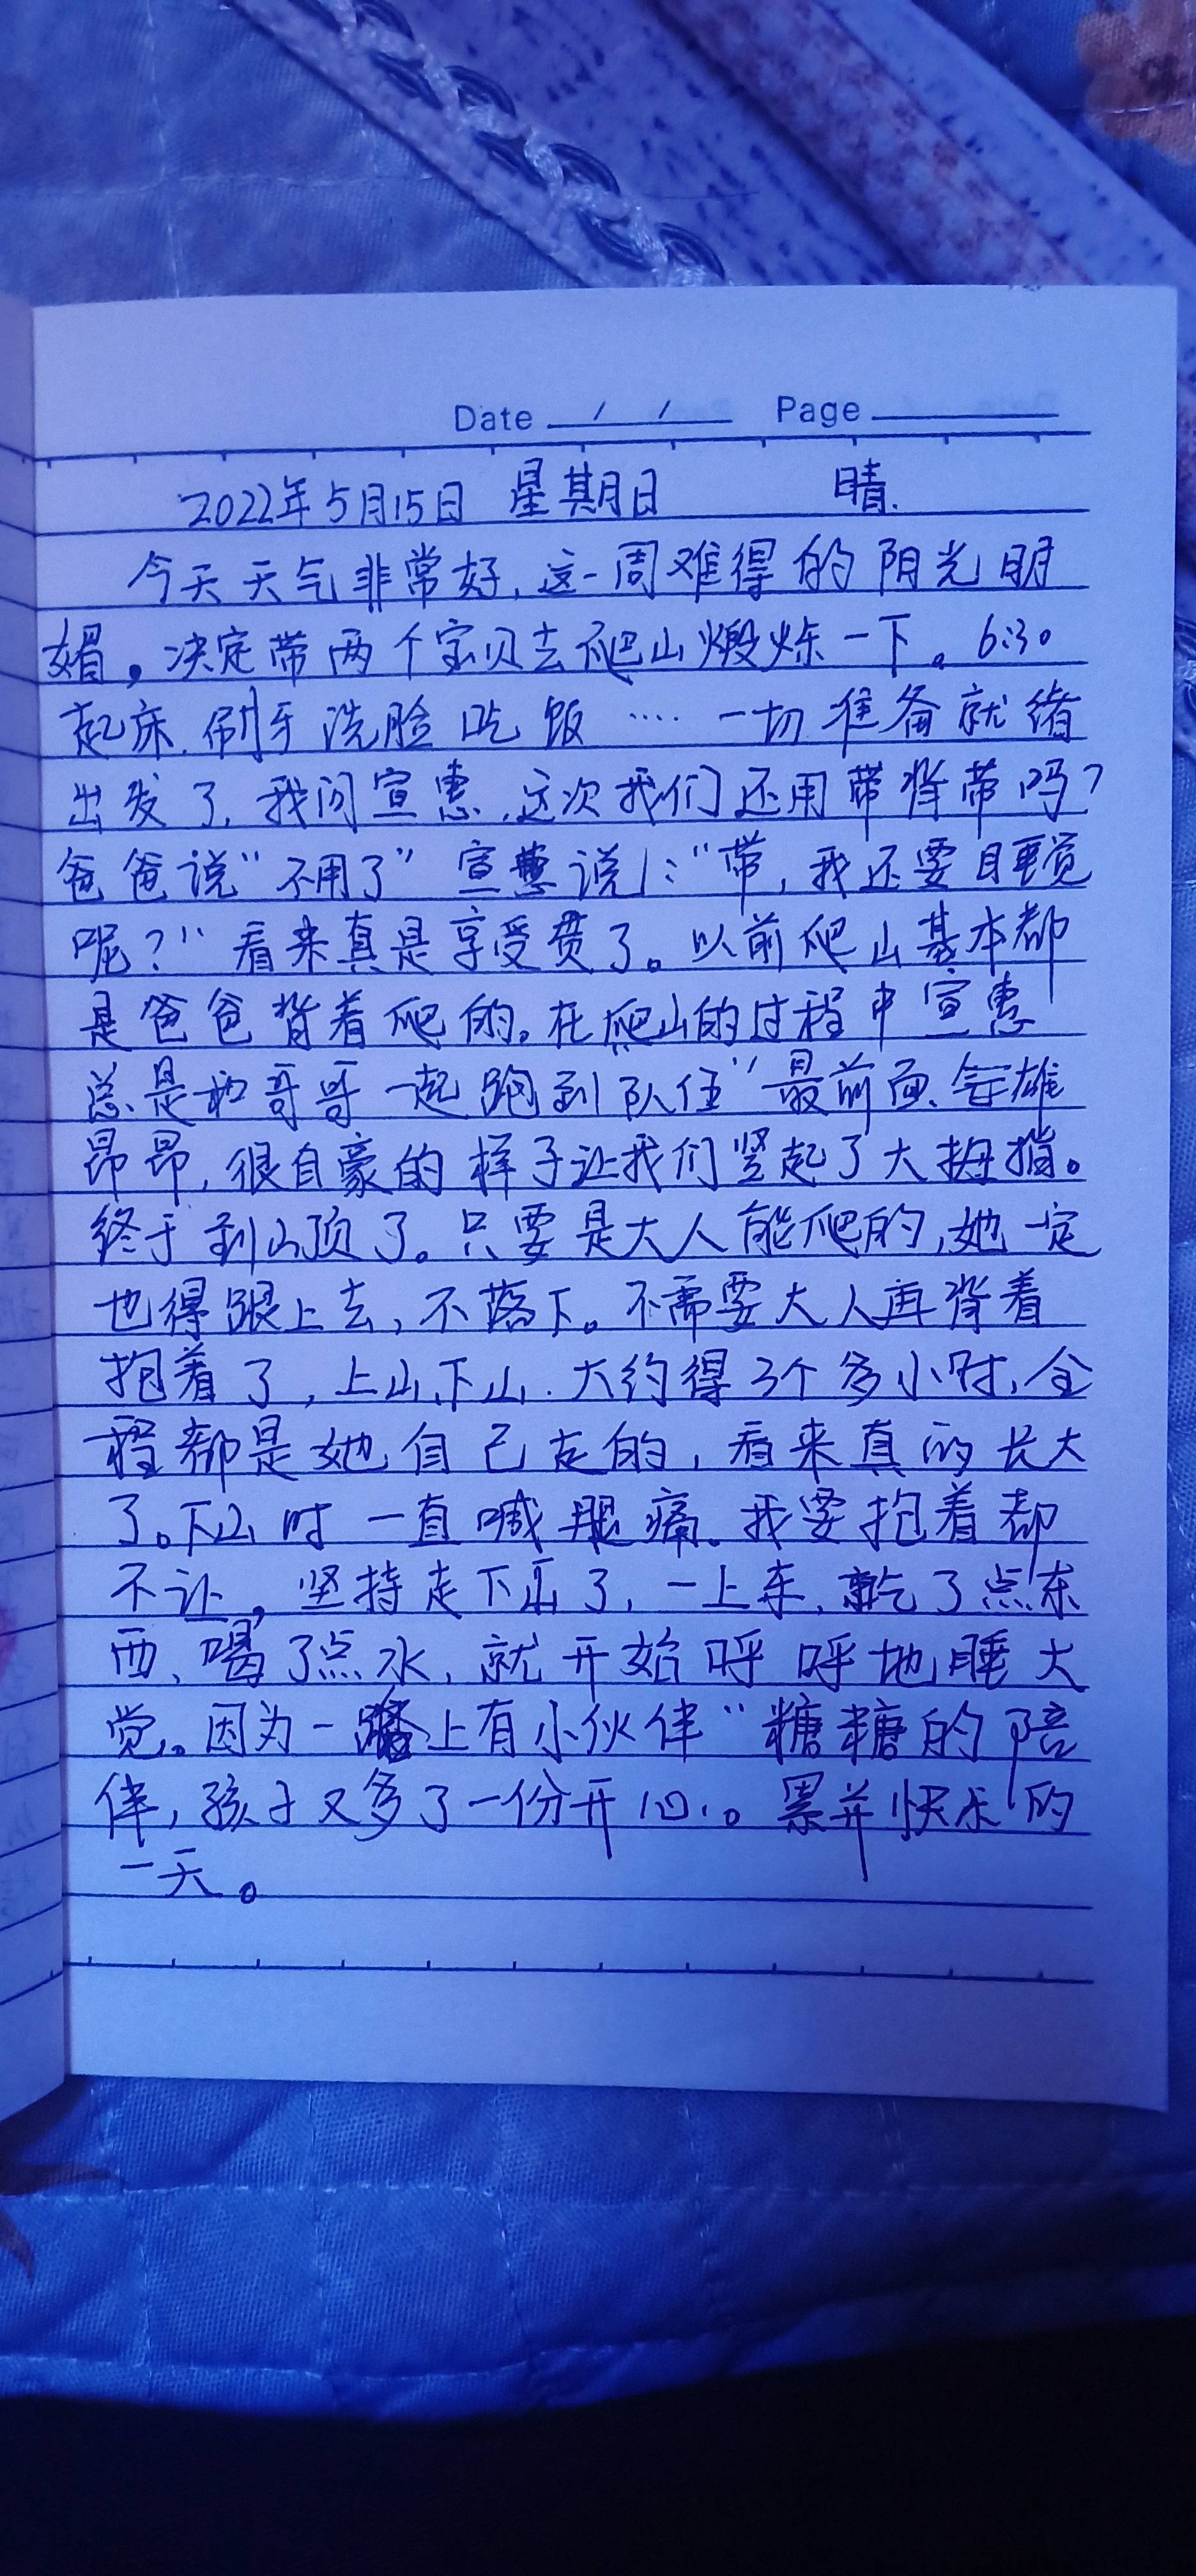 Date / / Page
2022年5月15日 星期日 晴.
今天天气非常好,这一周难得的阳光明
媚。决定带两个宝贝去爬山煅炼一下。6:30
起床.刷牙洗脸吃饭……一切准备就绪
出发了,我问宣惠,这次我们还用带背带吗?
爸爸说"不用了"宣惠说:"带,我还要睡觉
呢?"看来真是享受贯了。以前爬山基本都
是爸爸背着爬的。在爬山的过程中宣惠
总是和哥哥一起跑到队伍"最前面、雄
昂昂,很自豪的样子让我们竖起了大拇指。
终于到山顶了。只要是大人能爬的,她一定
也得跟上去,不落下。不需要大人再背着
抱着了,上山、下山.大约得3个多小时,全
程都是她自己走的,看来真的长大
了。下山时一直喊腿痛。我要抱着都
不让,坚持走下山了,一上车,吃了点东
西、喝了点水,就开始呼呼地睡大
觉。因为一路上有小伙伴"糖糖的陪
伴,孩子又多了一份开心。累并快乐的
一天。